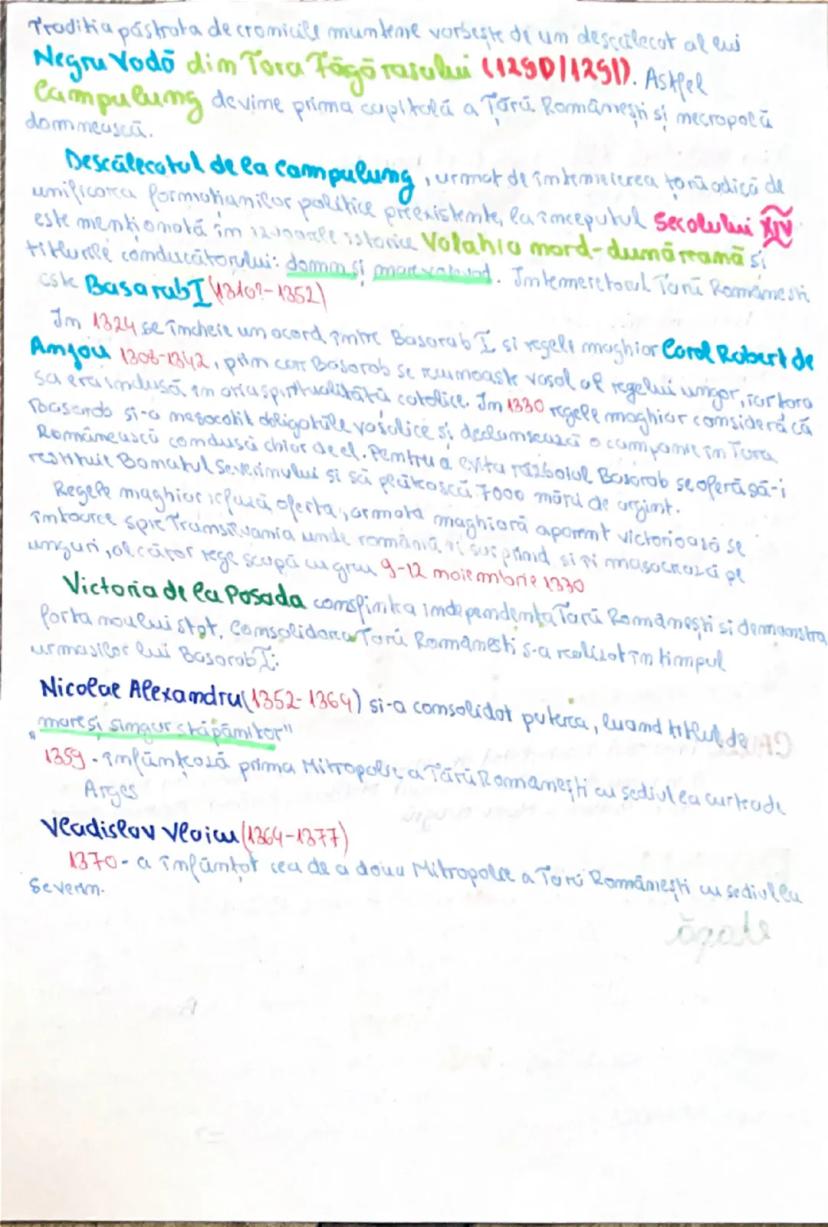 Traditia păstrata de cronicile muntene vorbește de un descălecat al lui
Negru Vodă din Tara Făgărasului (1290/1291). Astfel
Campulung devine prima capitală a Țării Românești si necropolă
domnească.
Descălecatul de la Campulung, urmat de întemeierea țării adică de
unificarea formatiunilor politice preexistente, la inceputul Secolului XIV
este mentionată în izvoarele istorice Valahia nord-dunăreană si
titlurile conducătorului: domn si mare voievod. Intemeietorul Tarii Romanesti
este Basarab I (1310?-1352)
In 1324 se încheie un acord între Basarab I si regele maghiar Carol Robert de
Anjou 1308-1342, prin car Basarab se recunoaste vasal al regelui ungar, iar tara
sa era indusă in aria spiritualității catolice. In 1330 regele maghiar consideră că
Basarab si-a nesocotit obligatiile vasalice și declansează o campanie in Tara
Românească condusă chiar de el. Pentru a evita războiul Basarab se oferă să-i
restituie Banatul Severinului si să plătească 7000 mărci de argint.
Regele maghiar refuză oferta, armata maghiară aparent victorioasă se
intoarce spre Transilvania unde românii îi surprind si ii masacrează pe
unguri, al căror rege scapă cu greu 9-12 noiembrie 1330
Victoria de la Posada consfinteă independenta Tarii Românești si demonstra
forta noului stat. Consolidarea Tarii Romanesti s-a realizat in timpul
urmasilor lui Basarab I:
Nicolae Alexandru (1352-1364) si-a consolidat puterea, luand titlul de
„mare si singur stăpânitor"
1359 - înființează prima Mitropolie a Tării Romanești cu sediul la curtea de
Arges
Vladislav Vlaicu (1364-1377)
1370 - a înființat cea de a doua Mitropolie a Tarii Românești cu sediul la
Severin.